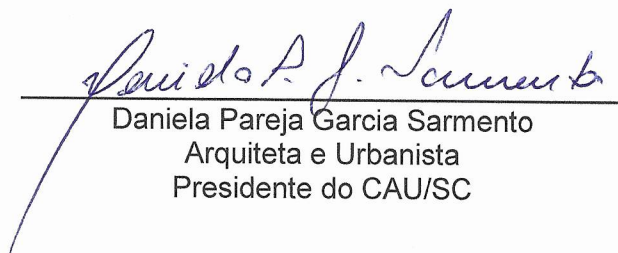 Daniela P. G. Sarmento
Daniela Pareja Garcia Sarmento
Arquiteta e Urbanista
Presidente do CAU/SC